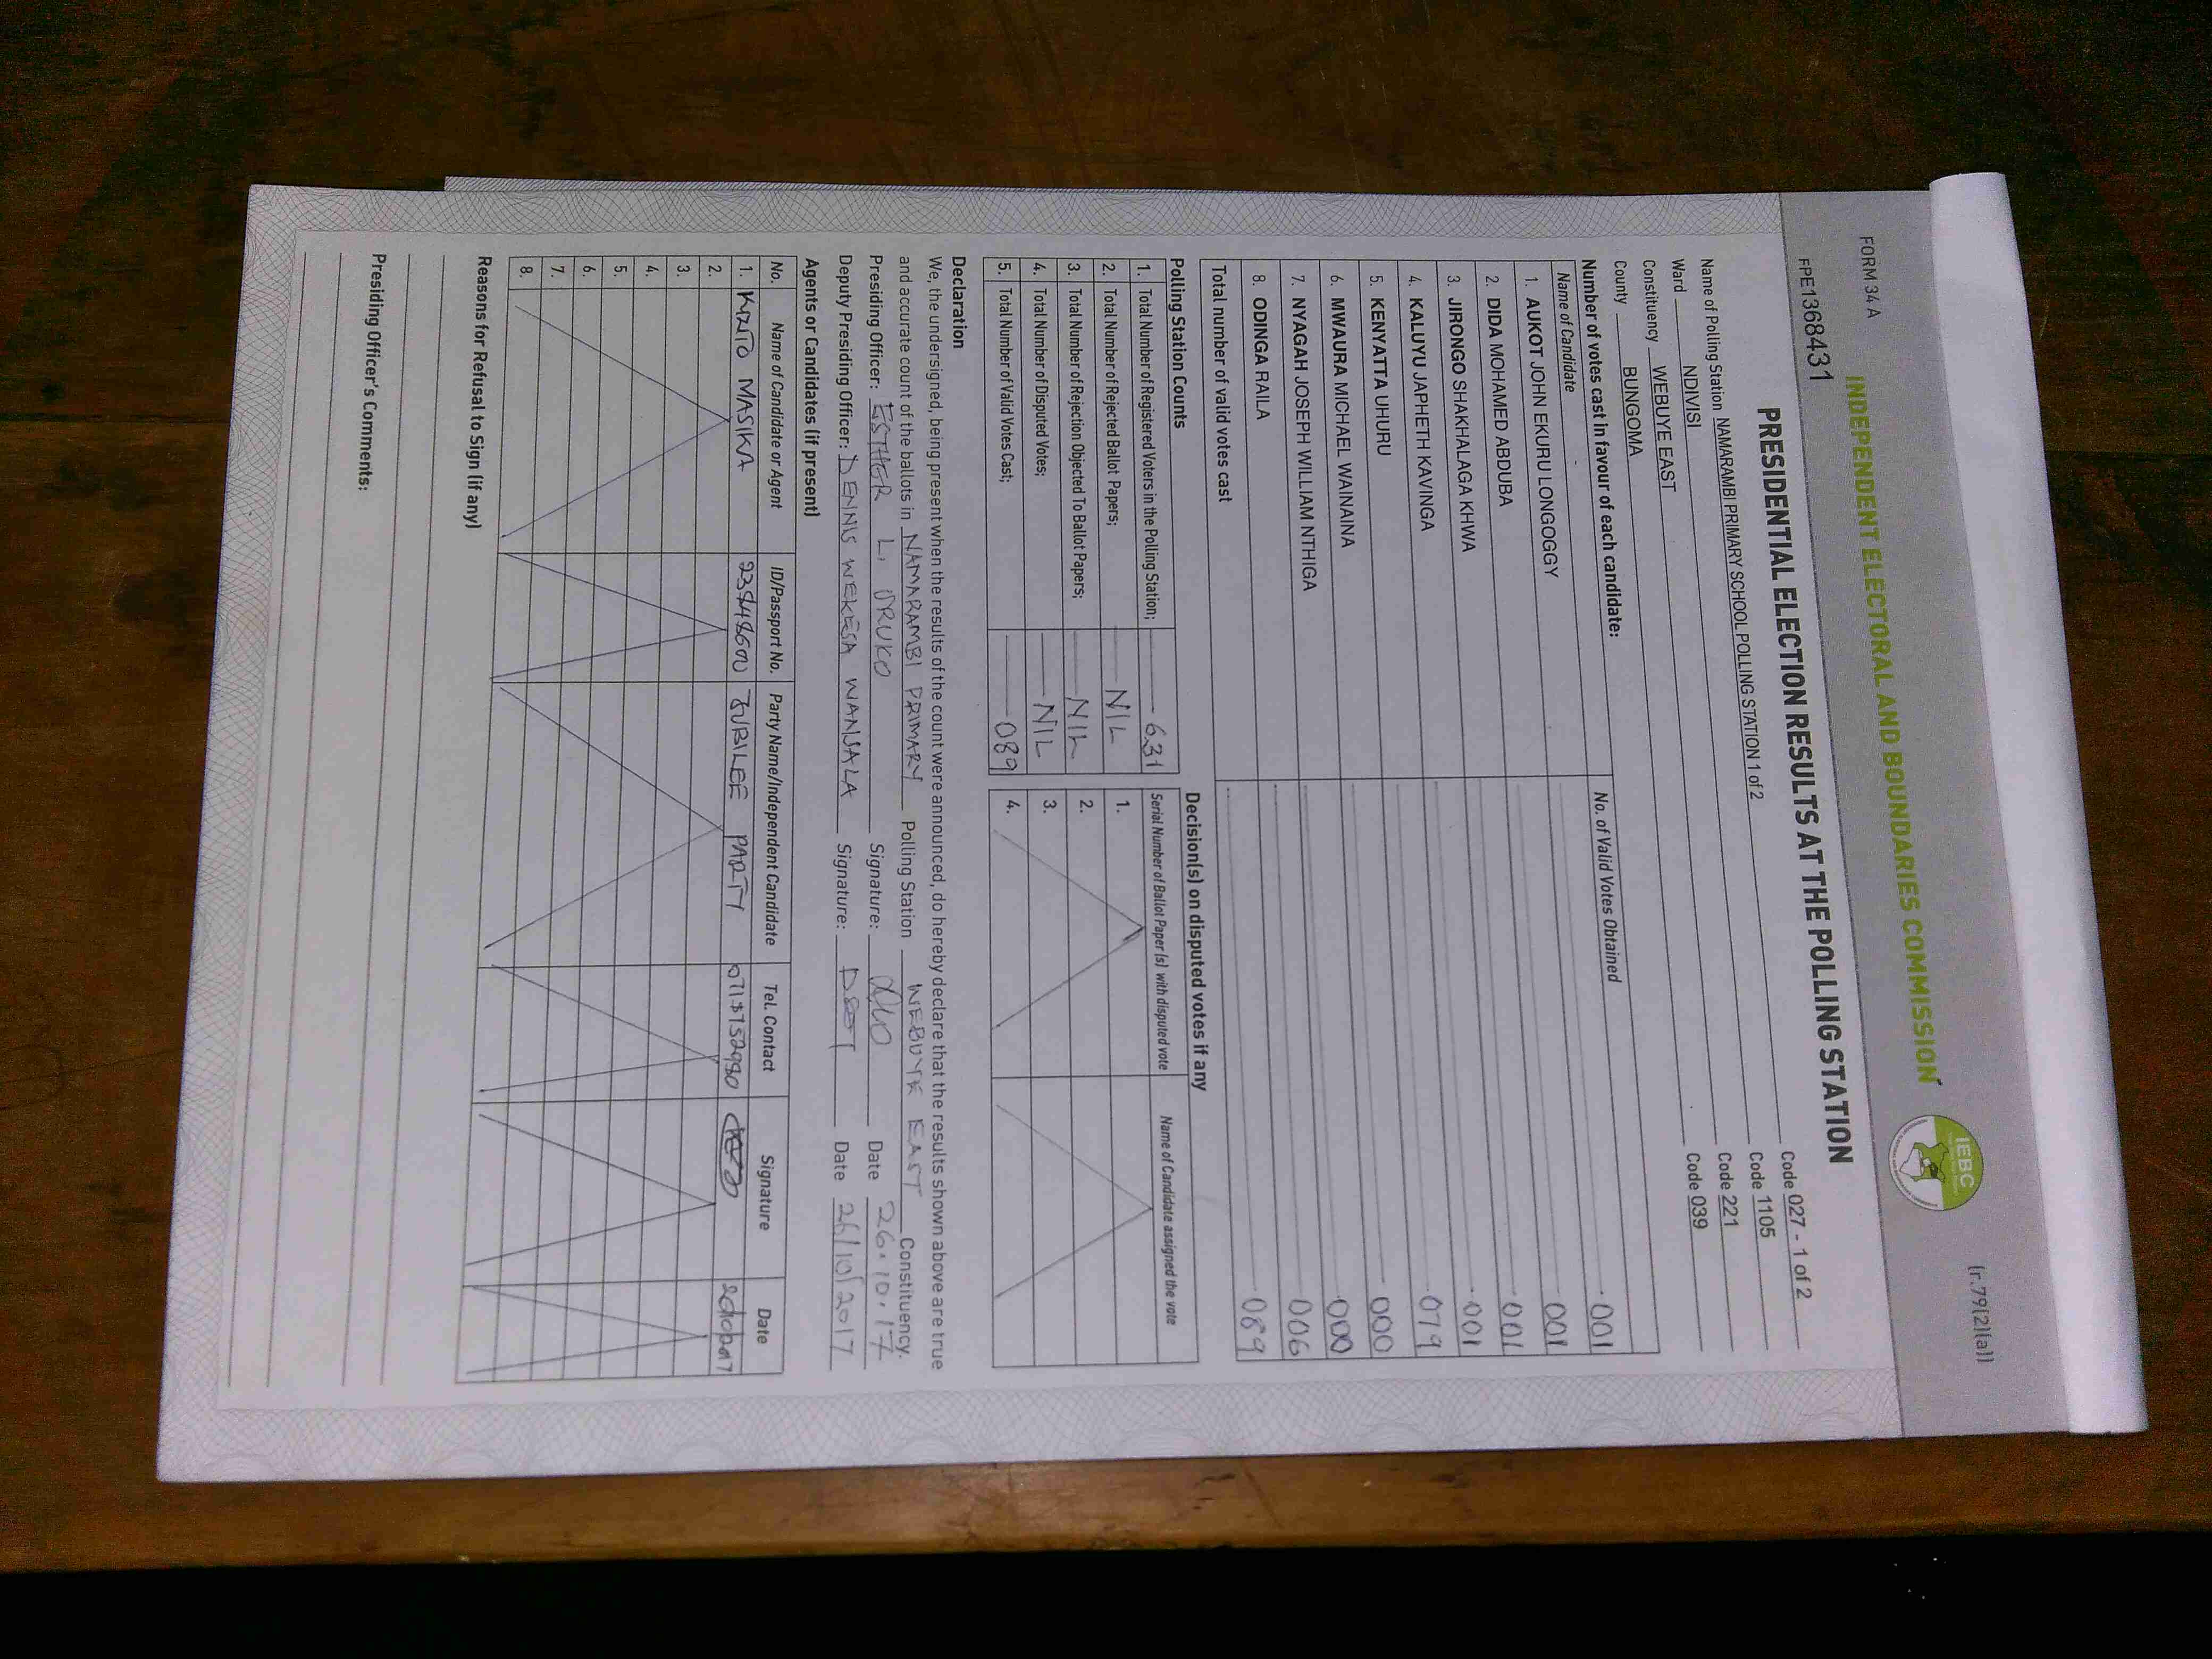 FORM 34 A
(r.79(2)(a))
INDEPENDENT ELECTORAL AND BOUNDARIES COMMISSION
IEBC
FPE1368431
PRESIDENTIAL ELECTION RESULTS AT THE POLLING STATION
Name of Polling Station NAMARAMBI PRIMARY SCHOOL POLLING STATION 1 of 2 Code 027 - 1 of 2
Ward NDIVISI Code 1105
Constituency WEBUYE EAST Code 221
County BUNGOMA Code 039
Number of votes cast in favour of each candidate:
Name of Candidate No. of Valid Votes Obtained
1. AUKOT JOHN EKURU LONGOGGY 001
2. DIDA MOHAMED ABDUBA 001
3. JIRONGO SHAKHALAGA KHWA 001
4. KALUYU JAPHETH KAVINGA 001
5. KENYATTA UHURU 079
6. MWAURA MICHAEL WAINAINA 000
7. NYAGAH JOSEPH WILLIAM NTHIGA 000
8. ODINGA RAILA 006
Total number of valid votes cast 089
Polling Station Counts
1. Total Number of Registered Voters in the Polling Station; 631
2. Total Number of Rejected Ballot Papers; NIL
3. Total Number of Rejection Objected To Ballot Papers; NIL
4. Total Number of Disputed Votes; NIL
5. Total Number of Valid Votes Cast; 089
Decision(s) on disputed votes if any
Serial Number of Ballot Paper (s) with disputed vote Name of Candidate assigned the vote
1.
2.
3.
4.
Declaration
We, the undersigned, being present when the results of the count were announced, do hereby declare that the results shown above are true
and accurate count of the ballots in NAMARAMBI PRIMARY Polling Station WEBUYE EAST Constituency.
Presiding Officer: ESTHER L. ORUKO Signature: Date 26.10.17
Deputy Presiding Officer: DENNIS WEKESA WANJALA Signature: Date 26/10/2017
Agents or Candidates (if present)
No. Name of Candidate or Agent ID/Passport No. Party Name/Independent Candidate Tel. Contact Signature Date
1. MASIKA JUBILEE PARTY
2.
3.
4.
5.
6.
7.
8.
Reasons for Refusal to Sign (if any)
Presiding Officer's Comments: